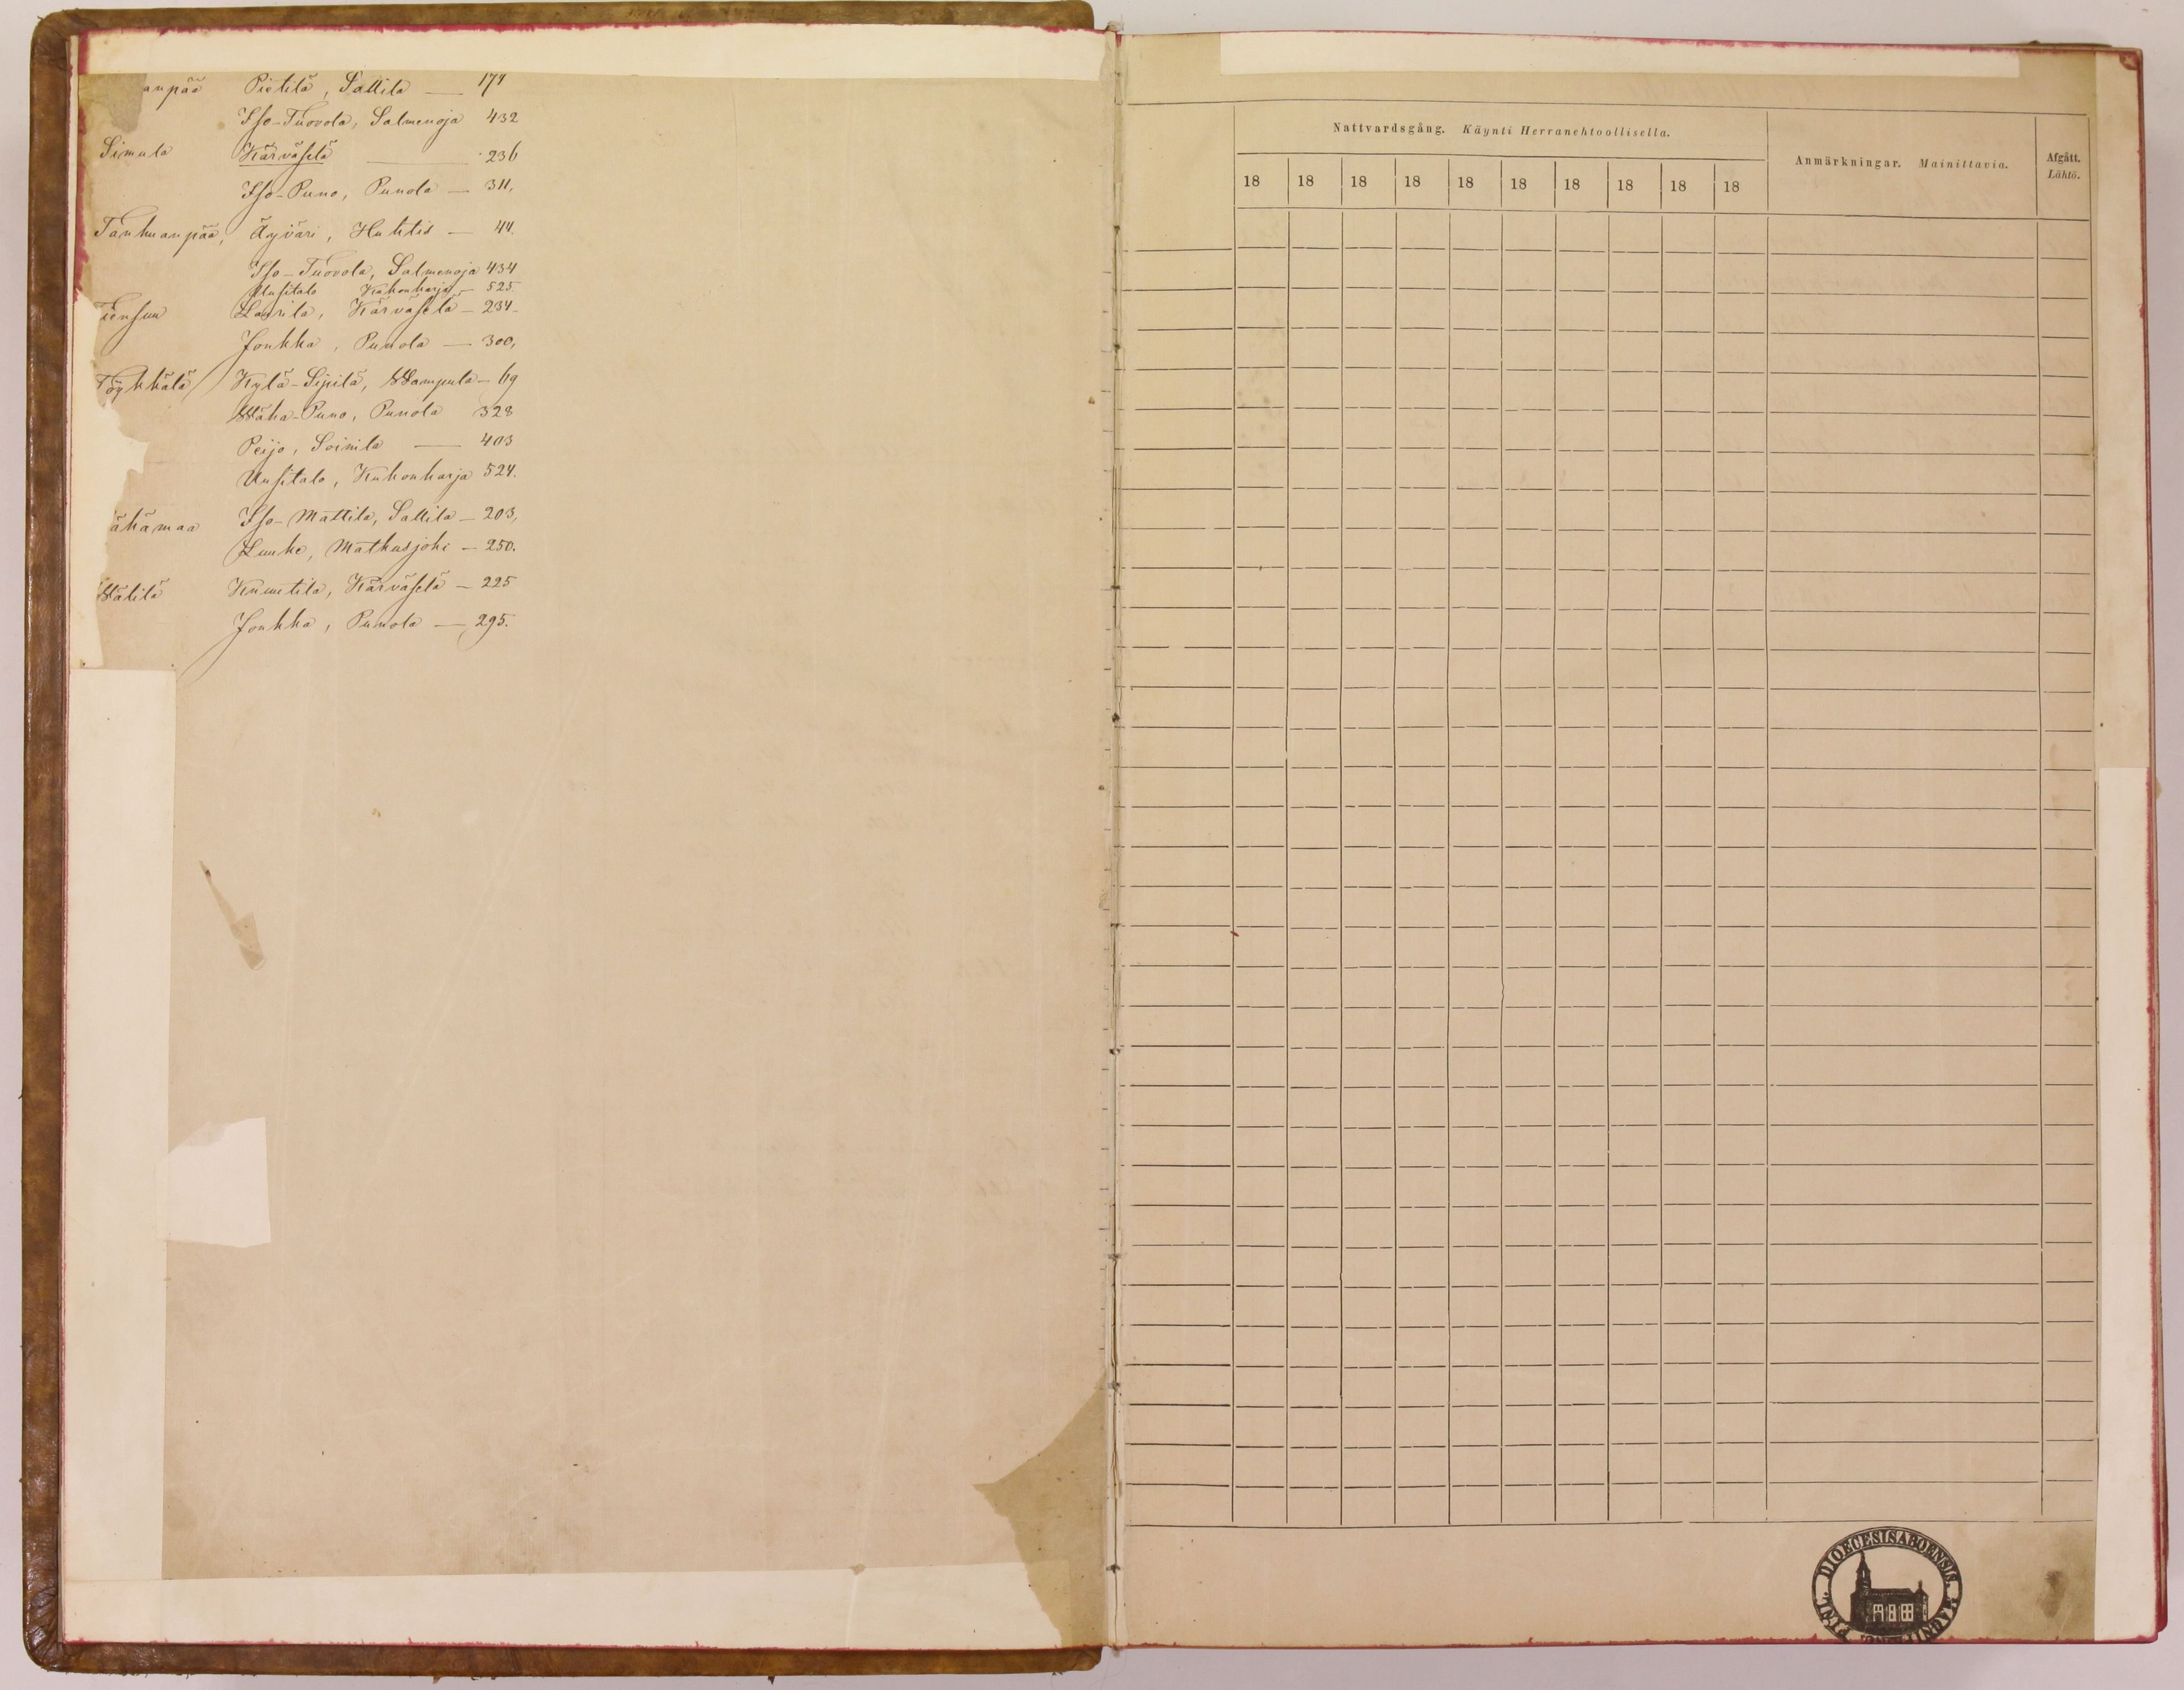 anpää Pietilä, Sallila — 174
Iso-Tuovola, Salmenoja 432
Simula Kärväselä — 236
Iso-Puno, Punola — 311,
Tanhuanpää, Äyväri, Huhtis — 44.
Iso-Tuovola, Salmenoja 434
Uusitalo Kukonharja — 525.
Tiensuu Laurila, Kärväselä — 234
Jonkka, Punola — 300,
Töykkälä Kylä-Sipilä, Wampula — 69
Wäha-Puno, Punola 328
Peijo, Soinila — 403
Uusitalo, Kukonharja 524.
ähämaa Iso-Mattila, Sallila — 203,
Luuke, Matkusjoki — 250.
Wälilä Knuutila, Kärväselä — 225
Jonkka, Punola — 295.
Nattvardsgång. Käynti Herranehtoollisella.
Anmärkningar. Mainittavia.
Afgått.
Lähtö.
18 18 18 18 18 18 18 18 18 18
DIOECESIS ABOENSIS MAGNI